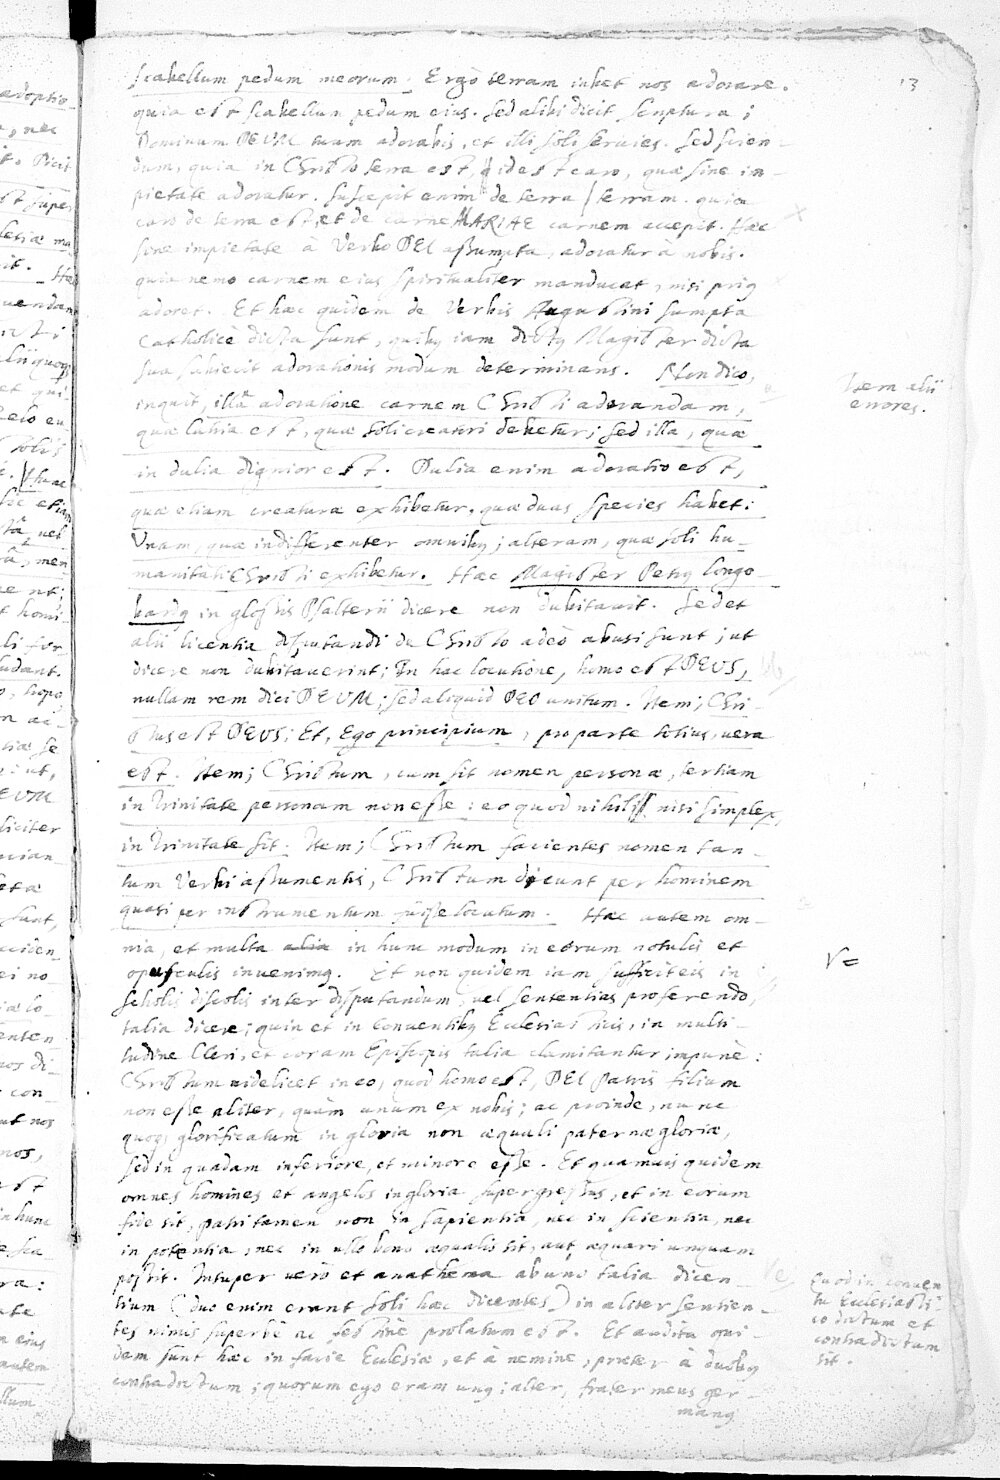 13
scabellum pedum meorum. Ergò terram iubet nos adorare.
quia est scabellum pedum eius. Sed alibi dicit scriptura;
Dominum DEUM tuum adorabis, et illi soli seruies. Sed scien-
dum, quia in Christo terra est, id est caro, quae sine im-
pietate adoratur. Suscepit enim de terra terram. quia
caro de terra est, et de carne MARIAE carnem accepit. Haec
sine impietate à Verbo DEI assumpta, adoratur à nobis.
quia nemo carnem eius spiritualiter manducat, nisi prius
adoret. Et haec quidem de Verbis Augustini sumpta
catholicè dicta sunt, quibus iam dictus Magister dicta
sua subiecit adorationis modum determinans. Non dico,
inquit, illâ adoratione carnem Christi adorandam,
quae latria est, quae soli creatori debetur; sed illa, quae
in dulia dignior est. Dulia enim adoratio est,
quae etiam creaturae exhibetur. quae duas species habet:
Vnam, quae indifferenter omnibus; alteram, quae soli hu-
manitati Christi exhibetur. Haec Magister Petrus Longo-
bardus in glossis Psalterii dicere non dubitauit. Sed et
alii licentia disputandi de Christo adeò abusi sunt; ut
dicere non dubitauerint; In hac locutione, homo est DEUS,
nullam rem dici DEUM; sed aliquid DEO unitum. Item; Chri-
stus est DEUS; Et, Ego principium, pro parte totius, vera
est. Item; Christum, cum sit nomen personae, tertiam
in Trinitate personam non esse: eo quod nihil nisi simplex,
in Trinitate sit. Item; Christum facientes nomen tan-
tum Verbi assumentis, Christum dicunt per hominem
quasi per instrumentum fuisse locutum. Haec autem om-
nia, et multa alia in hunc modum in eorum notulis et
opusculis inuenimus. Et non quidem iam sufficit eis in
scholis discolis inter disputandum, vel sententias proferendo,
talia dicere; quin et in Conuentibus Ecclesiasticis, in multi-
tudine Cleri, et coram Episcopis talia clamitantur impunè:
Christum uidelicet in eo, quod homo est, DEI Patris filium
non esse aliter, quàm unum ex nobis; ac proinde, nunc
quoque glorificatum in gloria non aequali paternae gloriae,
sed in quadam inferiore, et minore esse. Et quamuis quidem
omnes homines et angelos in gloria supergressus, et in eorum
fide sit, patri tamen non in sapientia, nec in scientia, nec
in potentia, nec in ullo bono aequalis sit, aut aequari unquam
possit. Insuper verò et anathema ab uno talia dicen
tium (duo enim erant soli haec dicentes) in aliter sentien-
tes nimis superbè ac festinè prolatum est. Et audita qui-
dem sunt haec in facie Ecclesiae, et à nemine, praeter à duobus
contradictum; quorum ego eram unus; alter, frater meus ger-
manus
Item alii
errores.
Quod in conuen
tu Ecclesiasti-
co dictum et
contradictum
sit.